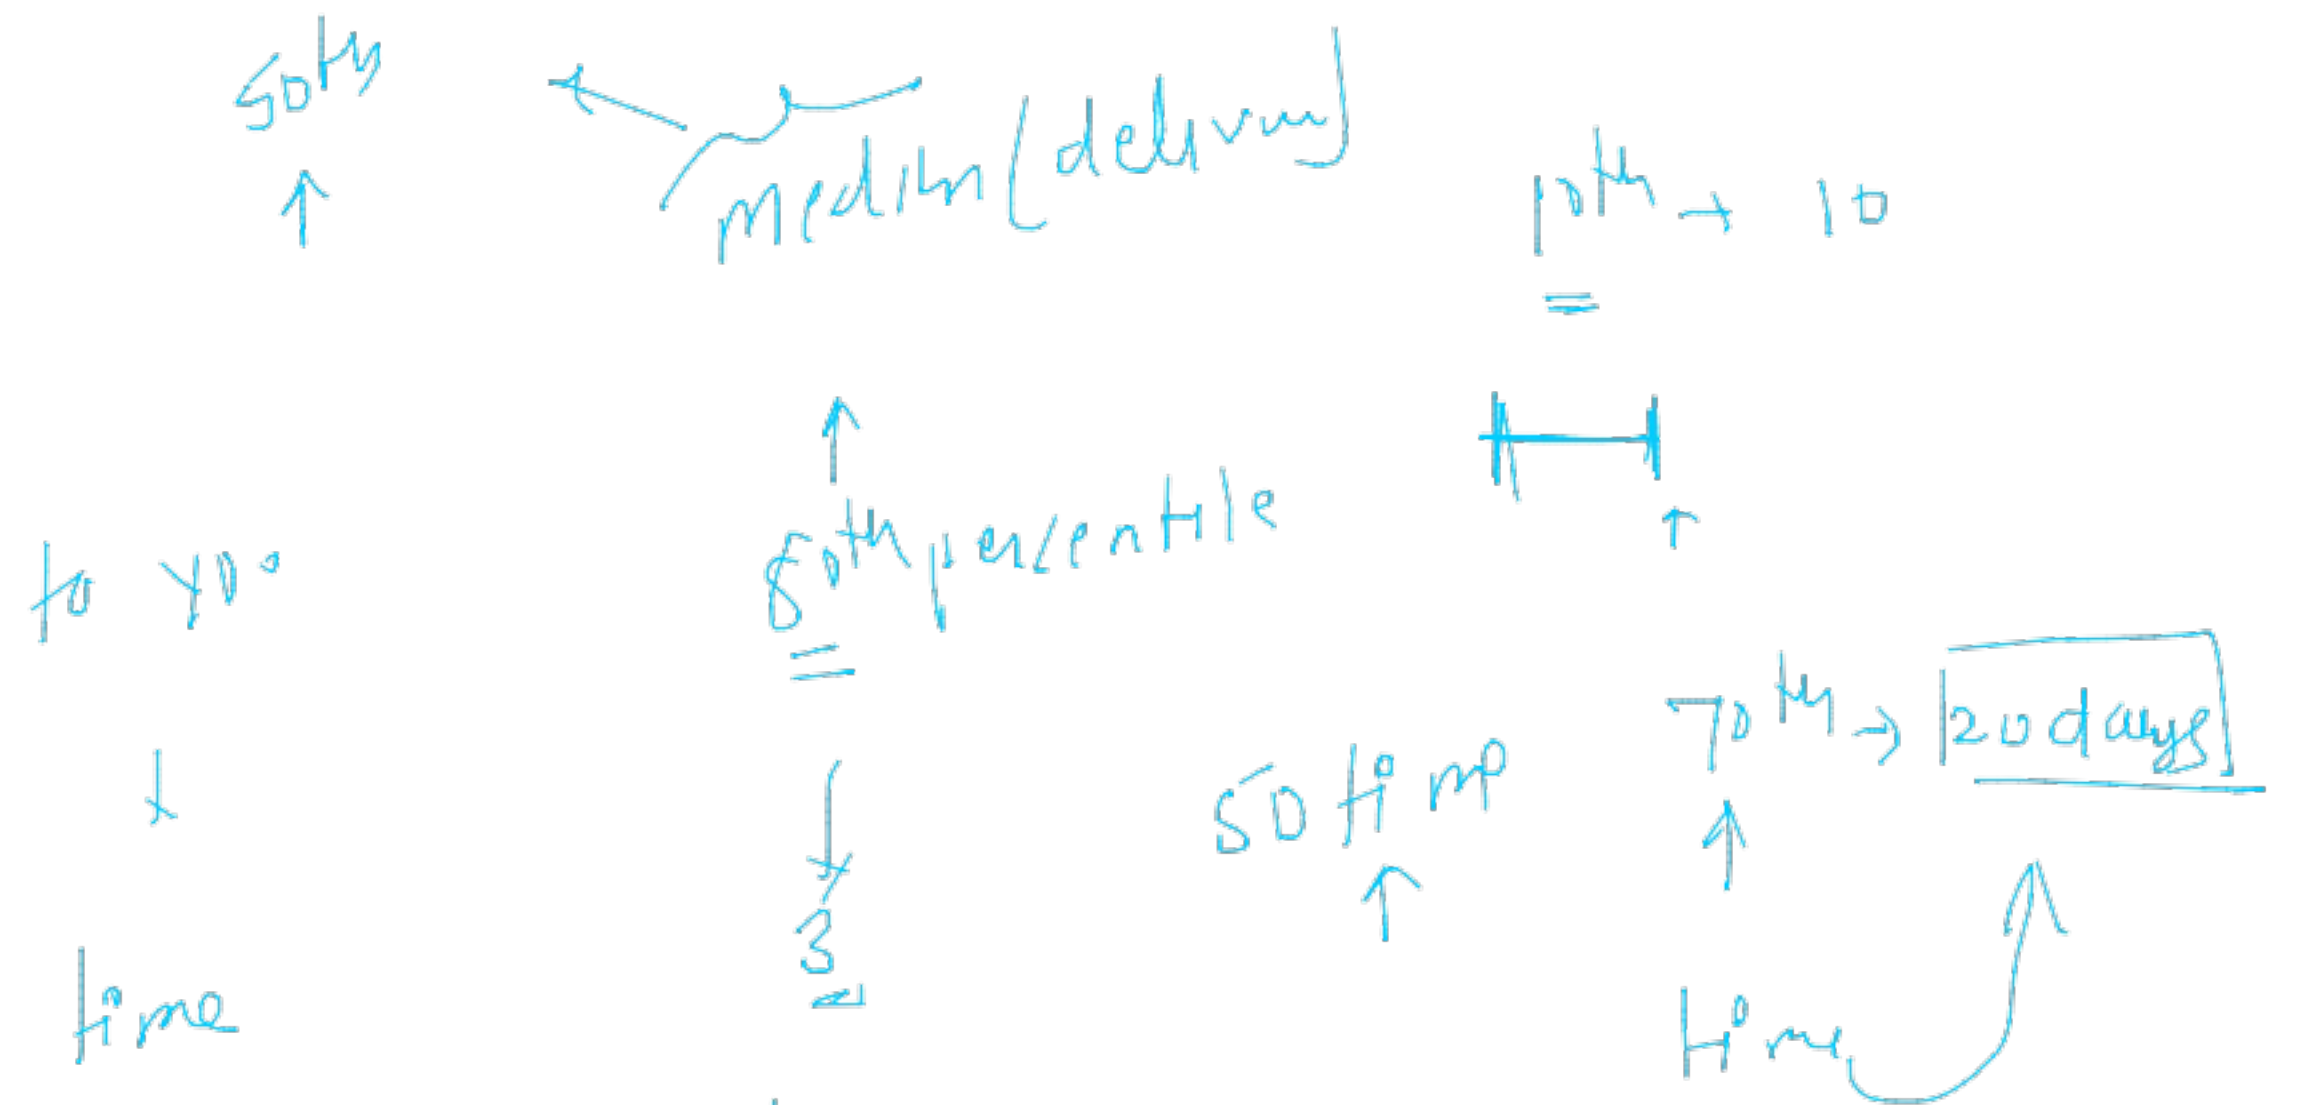 50th
median(delivery)
10th → 10
80th percentile
to
70th → 20 days
50 time
3
time
time